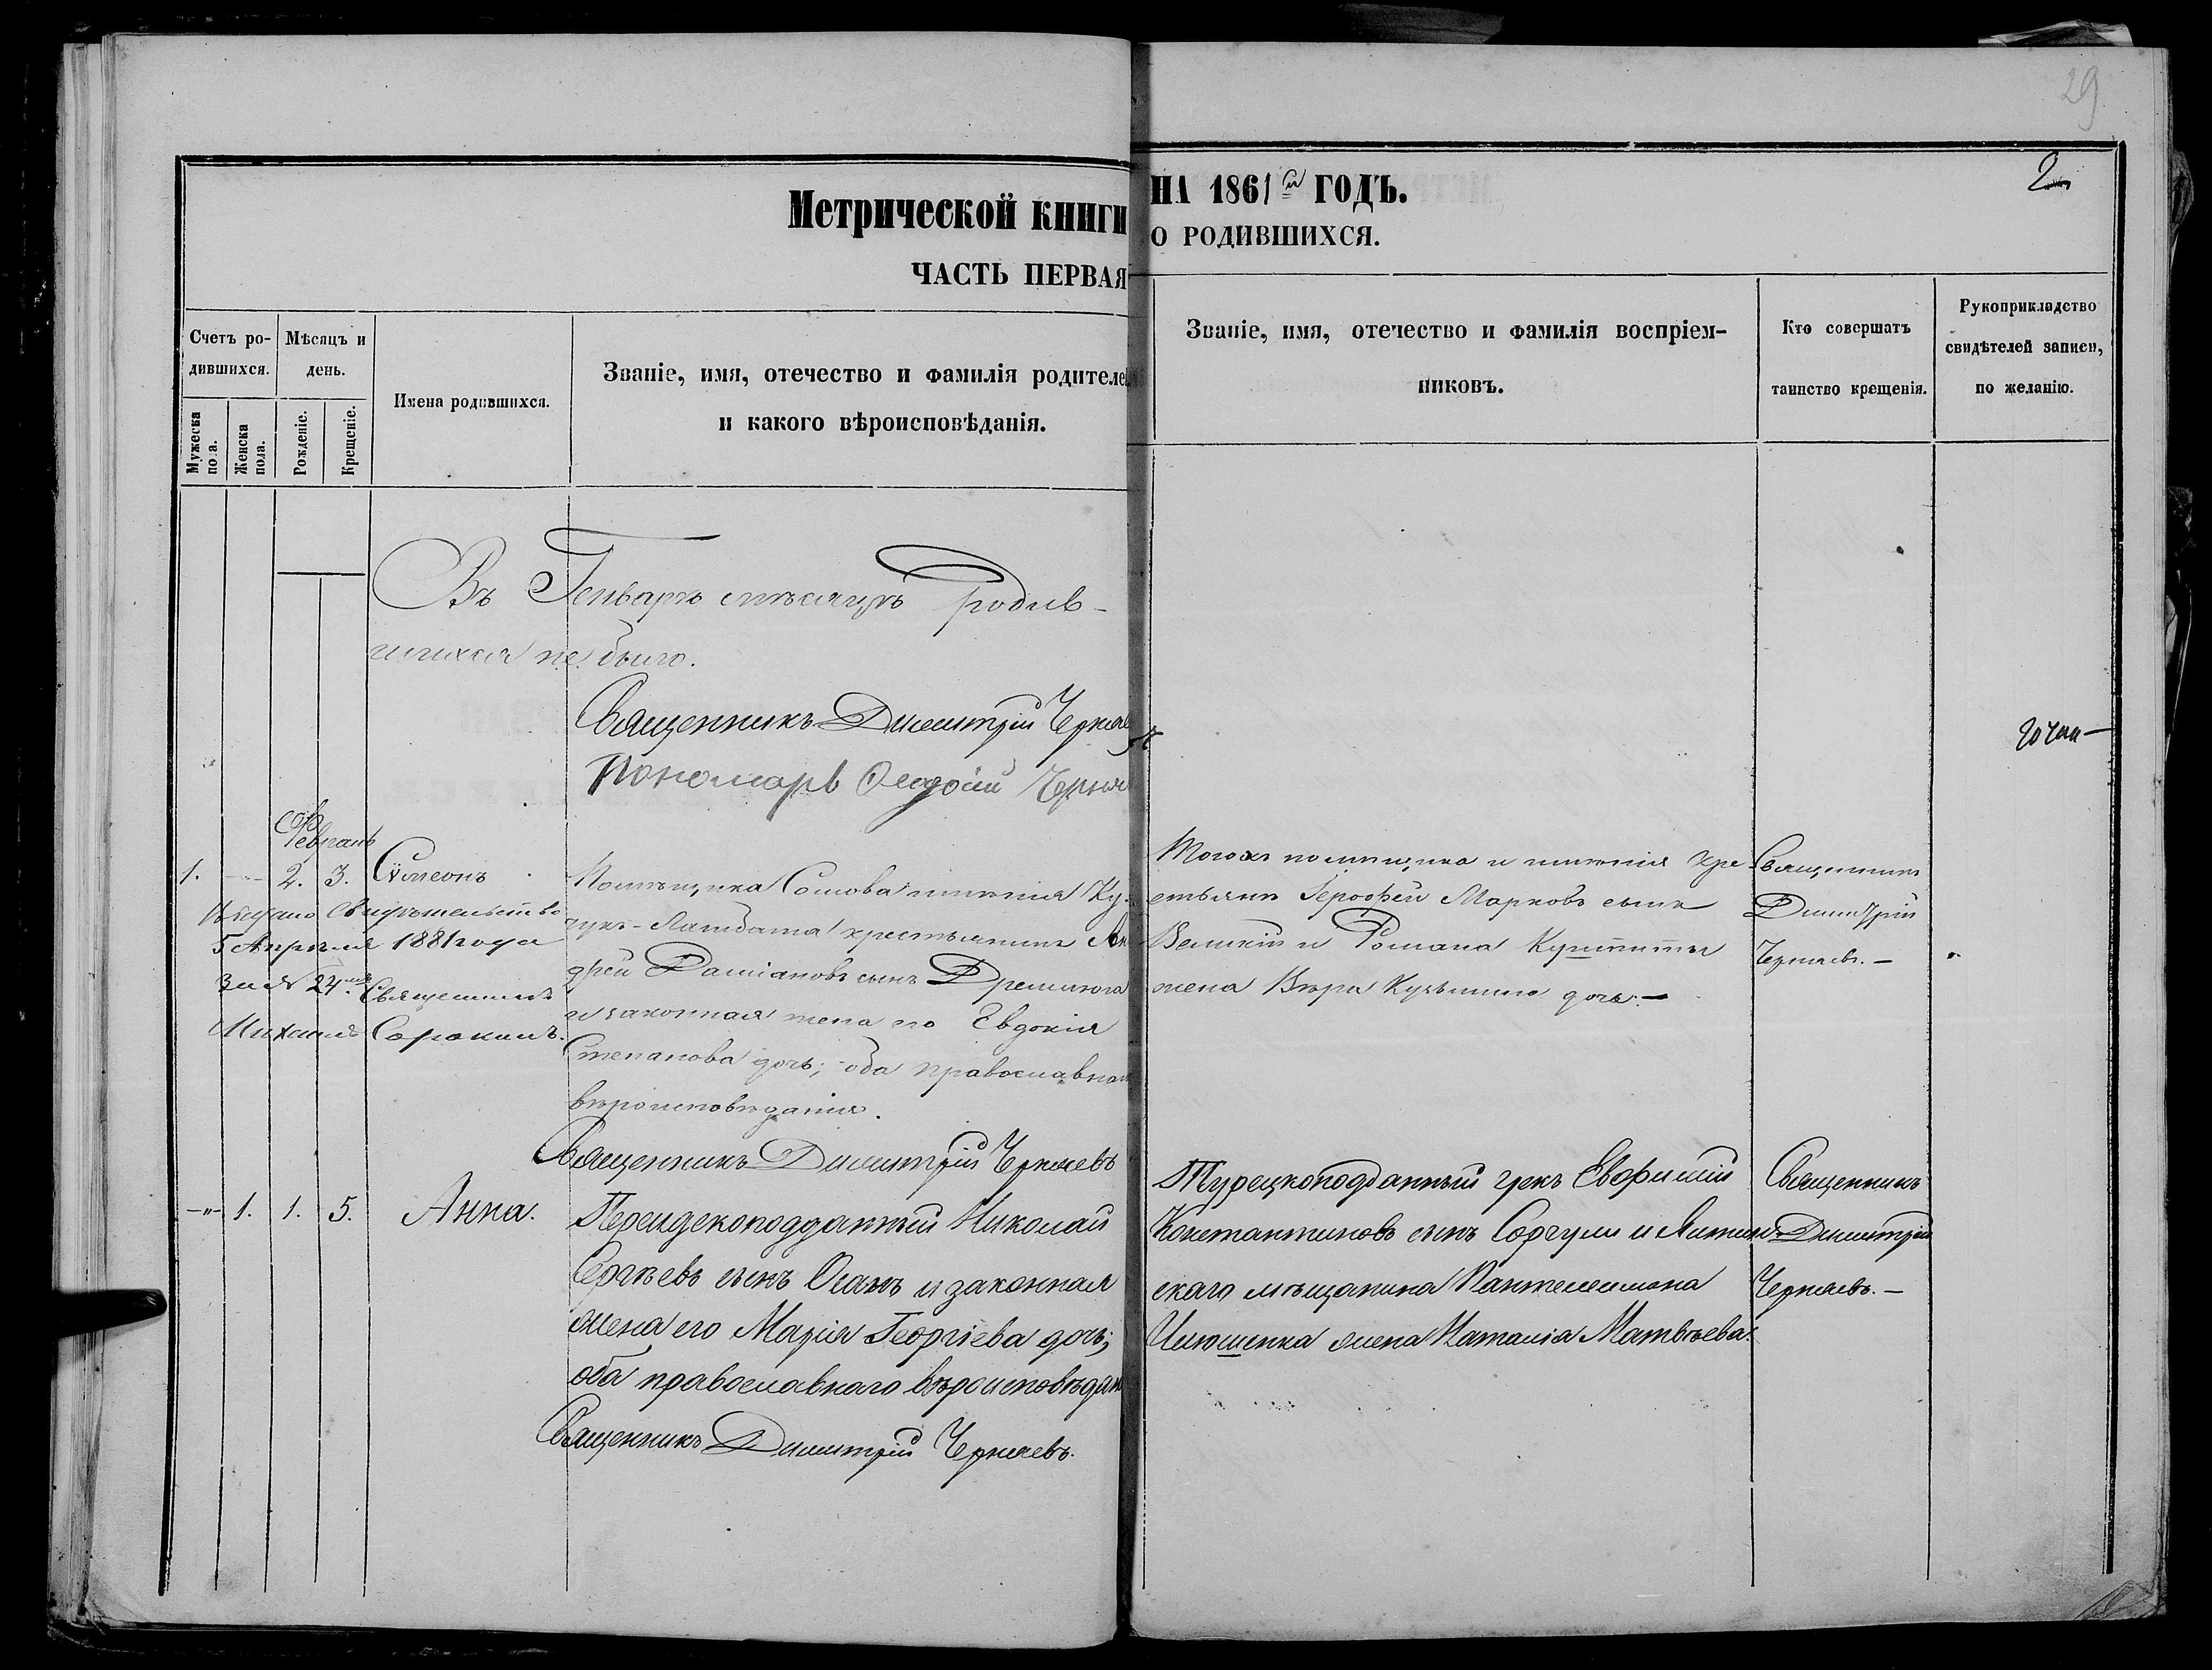 29
2
Метрической книги НА 1861й ГОДЪ.
О РОДИВШИХСЯ.
ЧАСТЬ ПЕРВАЯ
Счетъ ро-
дившихся.
Мужеска
пола.
Женска
пола.
Мѣсяцъ и
день.
Рожденіе.
Крещеніе.
Имена родившихся.
Званіе, имя, отечество и фамилія родителе
и какого вѣроисповѣданія.
Званіе, имя, отечество и фамилія воспріем-
никовъ.
Кто совершатъ
таинство крещенія.
Рукоприкладство
свидѣтелей записи,
по желанію.
Въ Генварѣ мѣсяцѣ родив-
шихся не было.
Священникъ Димитрій Черняв
Пономарь Ѳеодосій Черня
Февраль
1. 2. 3. Сѵмеонъ
Помѣщика Сомова имѣнія Ку-
чукъ- крестьянинъ Ан
дрей Даміановъ сынъ Дремлюга
и законная жена его Евдокія
Степанова дочь; оба православнаг
вѣроисповѣданія.
Священникъ Димитрій Черняевъ
Выдано свидѣтельство
5 Апрѣля 1881 года
за № 24 Священникъ
Михаилъ Сорокинъ.
Тогожъ помѣщика и имѣнія кре
стьянинъ Іероѳей Марковъ сынъ
Великій и Романа
жена Вѣра Кузьмина дочь. —
Священникъ
Димитрій
Черняевъ. —
-"- 1. 1. 5. Анна.
Персидскоподданный Николай
Сергѣевъ сынъ Осанъ и законная
жена его Марія Георгіева дочь;
оба православнаго вѣроисповѣдан
Священникъ Димитрій Черняевъ.
Турецкоподданный грекъ Евѳимій
Константиновъ сынъ и
скаго мѣщанина Пантелеимона
жена Наталія Матвѣева.
Священникъ
Димитрій
Черняевъ. —